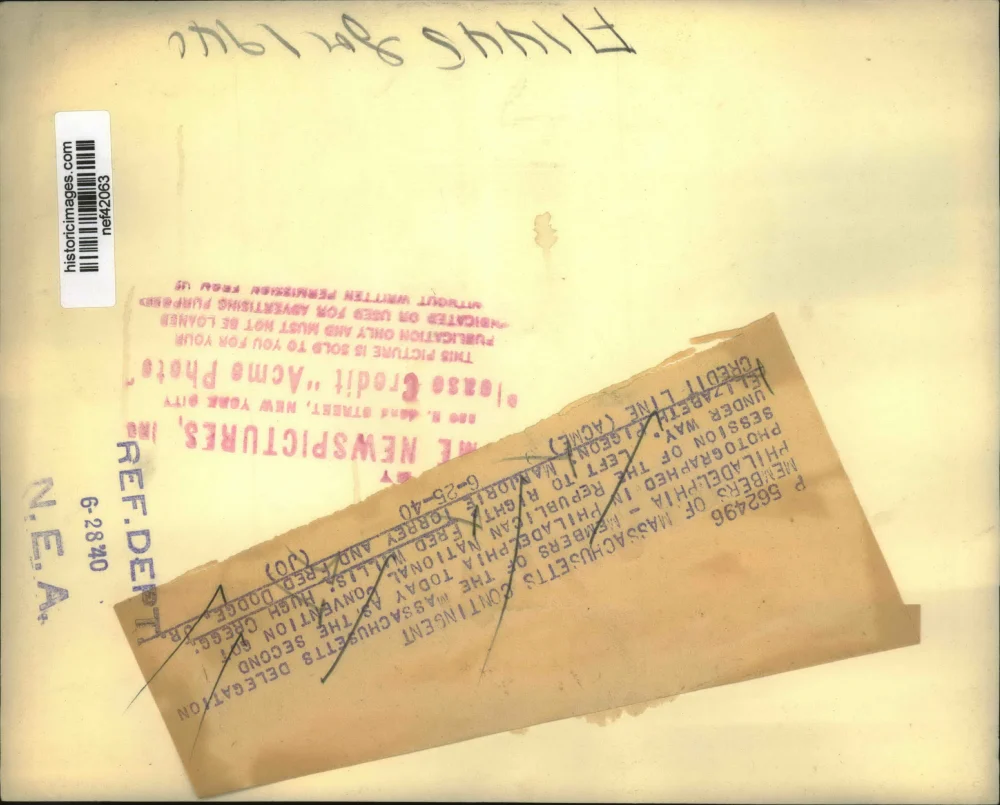 historicimages.com
nef42063
P 562496
MEMBERS OF MASSACHUSETTS CONTINGENT
PHILADELPHIA - MEMBERS OF THE MASSACHUSETTS DELEGATION
PHOTOGRAPHED IN PHILADELPHIA TODAY AS THE SECOND
SESSION OF THE REPUBLICAN NATIONAL CONVENTION GOT
UNDER WAY. LEFT TO RIGHT: FRED WILLIS, HUGH CREGG,
ELIZABETH PIGEON, MARJORIE TORREY AND FRED DODGE, JR.
CREDIT LINE (ACME) 6-25-40 (JO)
BY
ME NEWSPICTURES, INC
STREET, NEW YORK CITY
lease Credit "Acme Photo"
THIS PICTURE IS SOLD TO YOU FOR YOUR
PUBLICATION ONLY AND MUST NOT BE LOANED
NDICATED OR USED FOR ADVERTISING PURPOSES
WITHOUT WRITTEN PERMISSION FROM US
REF. DEPT.
6-28 '40
N.E.A.